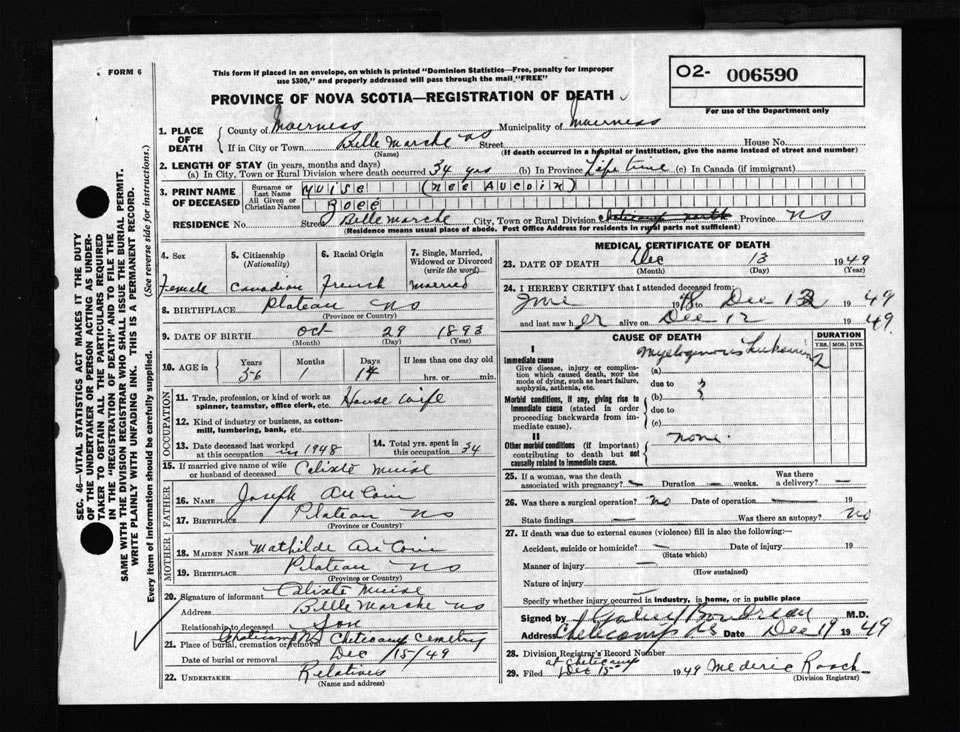 FORM 6
This form if placed in an envelope, on which is printed "Dominion Statistics—Free, penalty for improper
use $300," and properly addressed will pass through the mail "FREE"
PROVINCE OF NOVA SCOTIA—REGISTRATION OF DEATH
O2- 006590
For use of the Department only
1. PLACE OF DEATH
County of Inverness Municipality of Inverness
If in City or Town Belle Marche NS Street House No.
(Name) (If death occurred in a hospital or institution, give the name instead of street and number)
2. LENGTH OF STAY (in years, months and days)
(a) In City, Town or Rural Division where death occurred 34 yrs (b) In Province Life time (c) In Canada (if immigrant)
3. PRINT NAME OF DECEASED
Surname or Last Name MUISE (NEE AUCOIN)
All Given or Christian Names ROSE
RESIDENCE No. Street Belle Marche City, Town or Rural Division Province NS
(Residence means usual place of abode. Post Office Address for residents in rural parts not sufficient)
4. Sex
Female
5. Citizenship (Nationality)
Canadian
6. Racial Origin
French
7. Single, Married, Widowed or Divorced (write the word)
Married
8. BIRTHPLACE Plateau NS
(Province or Country)
9. DATE OF BIRTH Oct 29 1893
(Month) (Day) (Year)
10. AGE in
Years Months Days If less than one day old
56 1 14 hrs. or min.
OCCUPATION
11. Trade, profession, or kind of work as spinner, teamster, office clerk, etc. House wife
12. Kind of industry or business, as cotton-mill, lumbering, bank, etc.
13. Date deceased last worked at this occupation in 1948
14. Total yrs. spent in this occupation 34
15. If married give name of wife or husband of deceased Calixte Muise
FATHER
16. NAME Joseph AuCoin
17. BIRTHPLACE Plateau NS
(Province or Country)
MOTHER
18. MAIDEN NAME Mathilde AuCoin
19. BIRTHPLACE Plateau NS
(Province or Country)
20. Signature of informant Calixte Muise
Address Belle Marche NS
Relationship to deceased Son
21. Place of burial, cremation or removal Cheticamp NS Cheticamp Cemetery
Date of burial or removal Dec /15/49
22. UNDERTAKER Relatives
(Name and address)
MEDICAL CERTIFICATE OF DEATH
23. DATE OF DEATH Dec 13 1949
(Month) (Day) (Year)
24. I HEREBY CERTIFY that I attended deceased from:
June 1948 to Dec 13 1949
and last saw her alive on Dec 12 1949.
CAUSE OF DEATH
DURATION
YRS. MOS. DYS.
I
Immediate cause
Give disease, injury or complication which caused death, NOT the mode of dying, such as heart failure, asphyxia, asthenia, etc.
(a) Myelogenous Leukemia 2
due to
Morbid conditions, if any, giving rise to immediate cause (stated in order proceeding backwards from immediate cause).
(b)
due to
(c)
II
Other morbid conditions (if important) contributing to death but not causally related to immediate cause.
none.
25. If a woman, was the death associated with pregnancy? — Duration — weeks. Was there a delivery? —
26. Was there a surgical operation? no Date of operation — 19
State findings — Was there an autopsy? no
27. If death was due to external causes (violence) fill in also the following:—
Accident, suicide or homicide? — Date of injury 19
(State which)
Manner of injury —
(How sustained)
Nature of injury
Specify whether injury occurred in industry, in home, or in public place
Signed by Boudreau M.D.
Address Cheticamp NS Date Dec 19 1949
28. Division Registrar's Record Number
29. Filed at Cheticamp Dec 15 1949 Mederic Roach
(Division Registrar)
SEC. 46—VITAL STATISTICS ACT MAKES IT THE DUTY
OF THE UNDERTAKER OR PERSON ACTING AS UNDER-
TAKER TO OBTAIN ALL THE PARTICULARS REQUIRED
IN THE "REGISTRATION OF DEATH" AND TO FILE THE
SAME WITH THE DIVISION REGISTRAR WHO SHALL ISSUE THE BURIAL PERMIT.
WRITE PLAINLY WITH UNFADING INK. THIS IS A PERMANENT RECORD.
Every item of information should be carefully supplied. (See reverse side for instructions.)